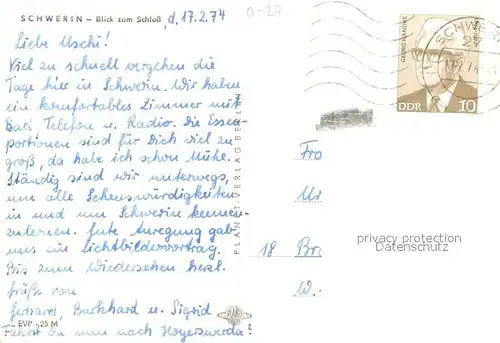 SCHWERIN – Blick zum Schloß, d. 17.2.74
0-27
Liebe Uschi!
Viel zu schnell vergehen die
Tage hier in Schwerin. Wir haben
ein komfortables Zimmer mit
Bad Telefon u. Radio. Die Essen-
portionen sind für Dich viel zu
groß, da habe ich schon Mühe.
Ständig sind wir unterwegs,
um alle Sehenswürdigkeiten
in und um Schwerin kennen-
zulernen. Gute Anregung gab
uns ein Lichtbildervortrag.
Bis zum Wiedersehen herzl.
Grüße von
Gerhard, Burkhard u. Sigrid
EVP -,25 M
Fahrt Ihr nun nach Hoyerswerda?
PLANET-VERLAG BERLIN
SCHWERIN
27
GEORG HANDKE
DDR 10
Fra
Ur
18 Br
W.
privacy protection
Datenschutz